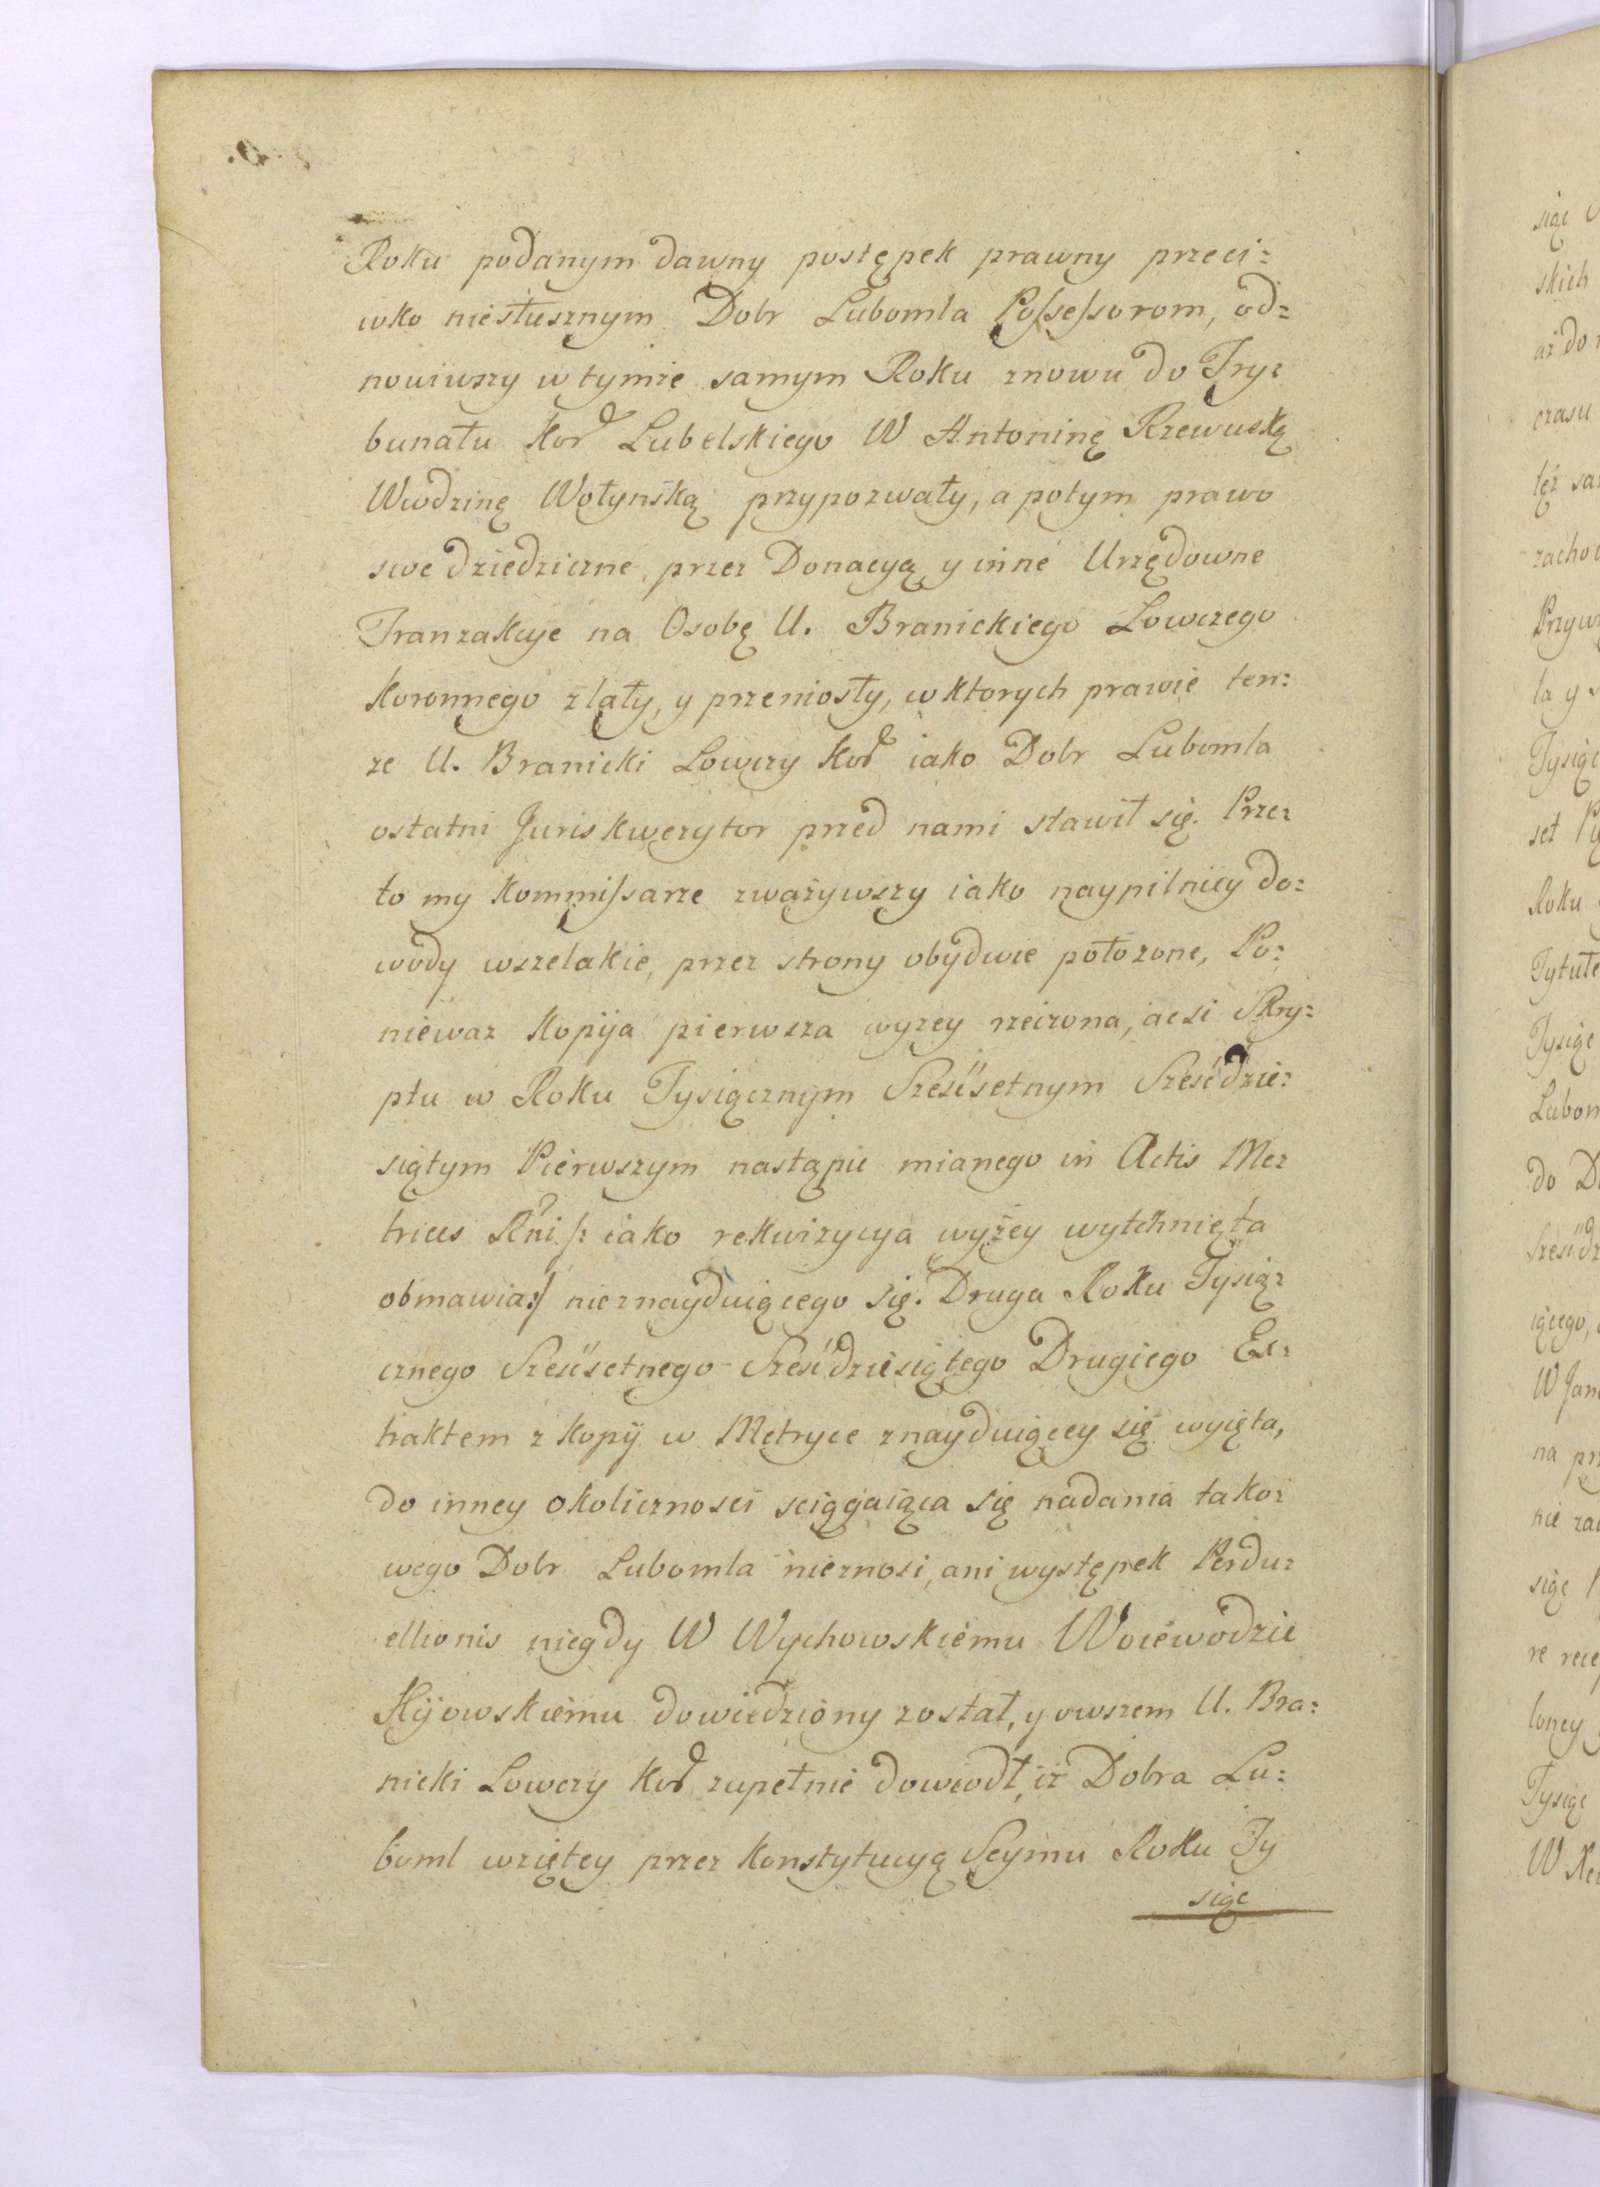 Roku podanym dawny postępek prawny przeci:
wko niesłusznym Dobr Lubomla Possessorom, od:
nowiwszy w tymże samym Roku znowu do Try:
bunału Kor Lubelskiego W Antoninę Rzewuską
Wwodzinę Wołynską przypozwały, a potym prawo
swe dziedziczne, przez Donacyą y inne Urzędowne
Tranzakcye na Osobę U. Branickiego Lowczego
Koronnego zlały, y przeniosły, w ktorych prawie ten:
ze U. Branicki Lowczy Kor iako Dobr Lubomla
ostatni Juriskwezytor przed nami stawił się. Prze:
to my Kommissarze zważywszy iako naypilniey do:
wody wszelakie, przez strony obydwie położone, Po:
nieważ Kopija pierwsza wyzey rzeczona, acsi Skry:
ptu w Roku Tysiącznym Szesćsetnym Szesćdzie:
siątym Pierwszym nastąpic mianego in Actis Me:
trices Rni /: iako rekwizycya wyżey wytchnięta
obmawia :/ nieznayduiącego się. Druga Roku Tysią:
cznego Szesćsetnego Szesćdziesiątego Drugiego Ex:
traktem z Kopij w Metryce znayduiącey się wyięta,
do inney okolicznosci sciągaiąca się nadania tako:
wego Dobr Lubomla nieznosi, ani występek Perdu:
ellionis niegdy W Wychowskiemu Woiewodzie
Kijowskiemu dowiedziony został, y owszem U. Bra:
nicki Lowczy Kor zupełnie dowiodł, iż Dobra Lu:
boml wziętey przez Konstytucyą Seymu Roku Ty
siąc
siąc
skich
aż do
czasu
też
Tysiąc
set
Roku
Tytułe
Tysiąc
Lubom
do
iącego,
na
nie
się
re
loney
Tysiąc
W